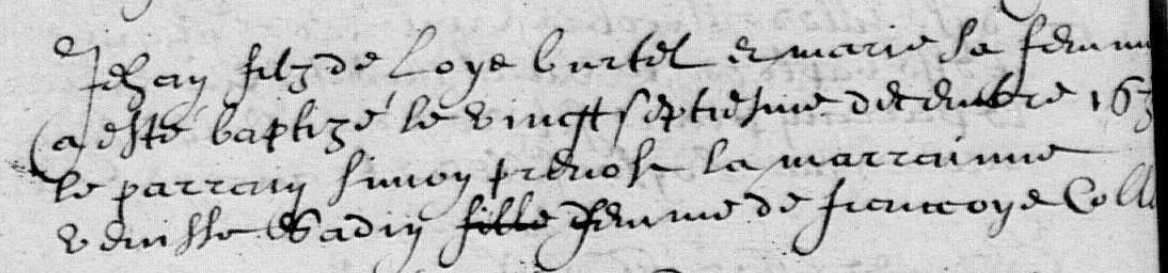 Jehan filz de Loys burtel et marie sa femm
a esté baptizé le vingt septiesme decembre 163
le parrain simon prevost la marrainne
venisse Sadin fille femme de francoys Coll